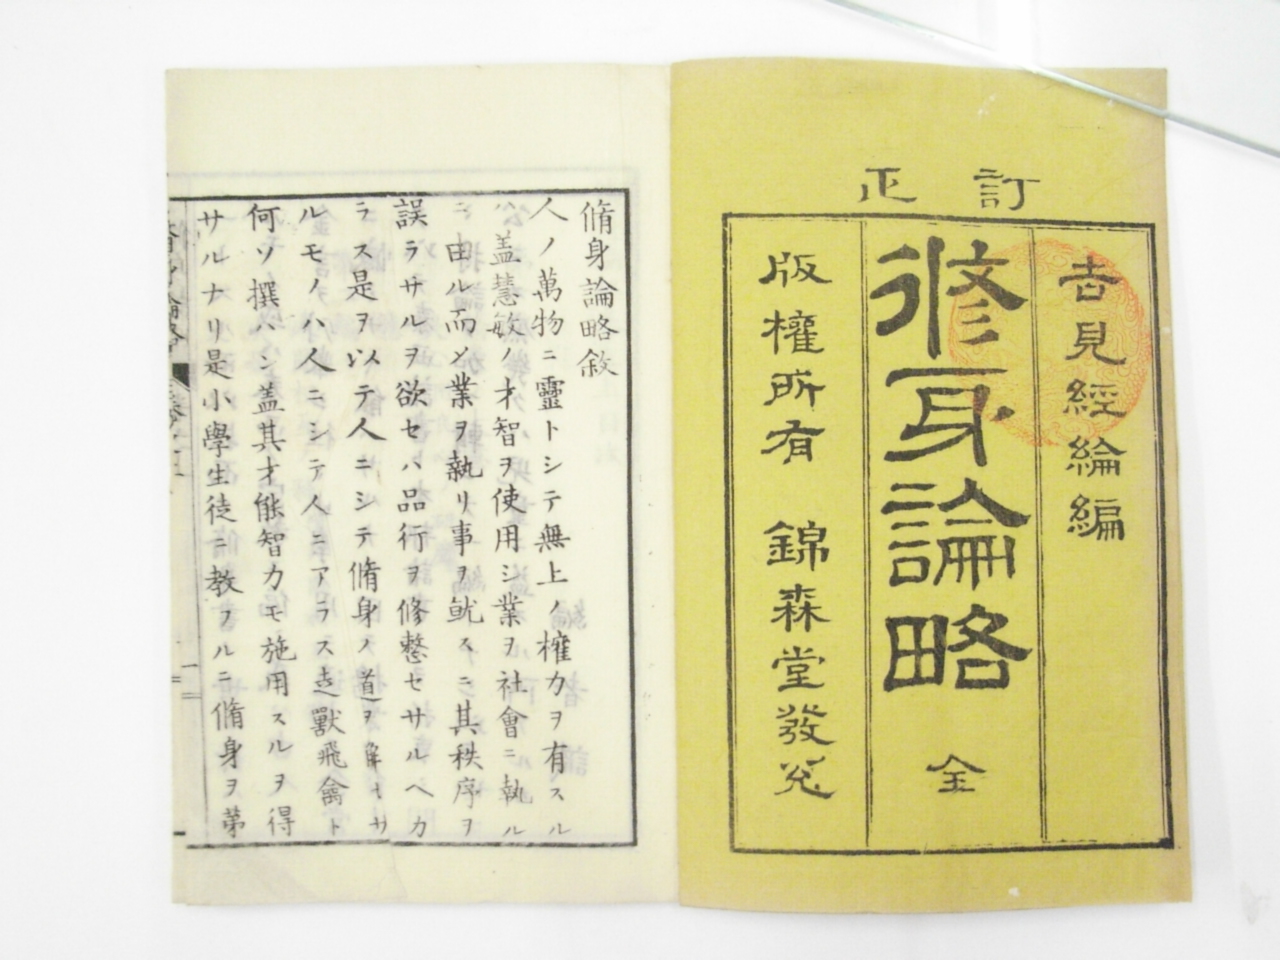 訂正
吉見經綸編
修身論略 全
版權所有 錦森堂發兌
脩身論略敘
人ノ萬物ニ靈トシテ無上ノ權力ヲ有スル
ハ蓋慧敏ノ才智ヲ使用シ業ヲ社會ニ執ル
ニ由ル而〆業ヲ執リ事ヲ就スニ其秩序ヲ
誤ラサルヲ欲セハ品行ヲ修整セサルヘカ
ラス是ヲ以テ人ニシテ脩身ノ道ヲ解セサ
ルモノハ人ニシテ人ニアラス走獸飛禽ト
何ソ撰ハン蓋其才能智力モ施用スルヲ得
サルナリ是小學生徒ニ教フルニ脩身ヲ苐
脩身論略